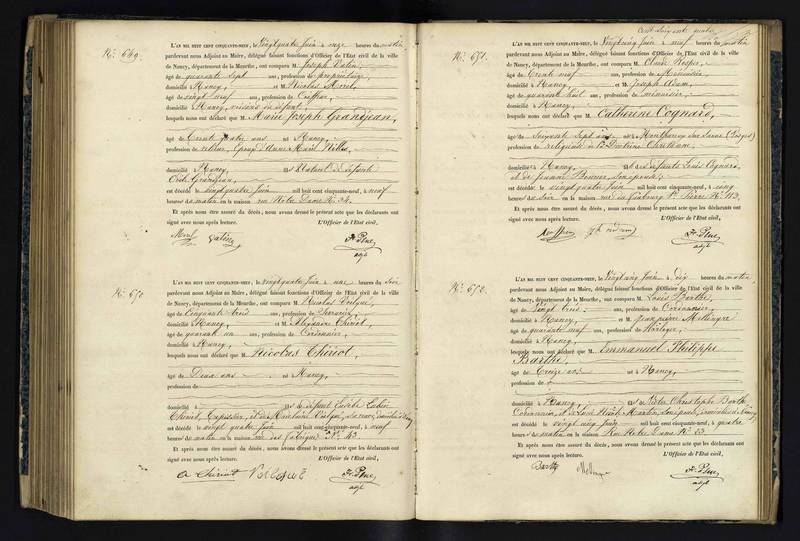 N° 649.
L'AN MIL HUIT CENT CINQUANTE-NEUF, le vingtquatre Juin à onze heures du matin,
pardevant nous Adjoint au Maire, délégué faisant fonctions d'Officier de l'Etat civil de la ville
de Nancy, département de la Meurthe, ont comparu M. Joseph
âgé de quarante sept ans, profession de propriétaire,
domicilié à Nancy, et M. Nicolas Morel,
âgé de vingt neuf ans, profession de Coiffeur,
domicilié à Nancy, voisins du défunt,
lesquels nous ont déclaré que M. Marie Joseph Grandjean,
âgé de Trente quatre ans né à Nancy,
profession de relieur, époux d'Anne Marie
domicilié à Nancy, fils Naturel de défunte
Grandjean
est décédé le vingtquatre juin mil huit cent cinquante-neuf, à neuf
heures du matin en la maison rue Notre Dame N° 34.
Et après nous être assuré du décès, nous avons dressé le présent acte que les déclarants ont
signé avec nous après lecture. L'Officier de l'Etat civil,
Morel
adjt
N° 650
L'AN MIL HUIT CENT CINQUANTE-NEUF, le vingtquatre Juin à une heures du soir
pardevant nous Adjoint au Maire, délégué faisant fonctions d'Officier de l'Etat civil de la ville
de Nancy, département de la Meurthe, ont comparu M. Nicolas
âgé de Cinquante trois ans, profession de Serrurier,
domicilié à Nancy et M. Thiriot,
âgé de quarante un ans, profession de Cordonnier,
domicilié à Nancy,
lesquels nous ont déclaré que M. Nicolas Thiriot,
âgé de Deux ans né à Nancy,
profession de
domicilié à fils de défunt
Thiriot,
est décédé le vingt quatre juin mil huit cent cinquante-neuf, à neuf
heures du matin en la maison rue des fabriques N° 43.
Et après nous être assuré du décès, nous avons dressé le présent acte que les déclarants ont
signé avec nous après lecture. L'Officier de l'Etat civil,
Thiriot
adjt
Cent soixante quatre
N° 651.
L'AN MIL HUIT CENT CINQUANTE-NEUF, le Vingtcinq Juin à neuf heures du matin
pardevant nous Adjoint au Maire, délégué faisant fonctions d'Officier de l'Etat civil de la ville
de Nancy, département de la Meurthe, ont comparu M. Claude
âgé de Trente neuf ans, profession de Menuisier,
domicilié à Nancy, et M. Joseph Adam,
âgé de quarante huit ans, profession de menuisier,
domicilié à Nancy,
lesquels nous ont déclaré que M. Catherine Cognard,
âgé de Soixante sept ans, née à Monthureux sur Saône (Vosges)
profession de religieuse de la Doctrine Chrétienne
domicilié à Nancy, fille des défunts Louis Cognard
et de
est décédé le vingtquatre juin mil huit cent cinquante-neuf, à cinq
heures du soir en la maison rue du faubourg St. Pierre N° 113.
Et après nous être assuré du décès, nous avons dressé le présent acte que les déclarants ont
signé avec nous après lecture. L'Officier de l'Etat civil,
adjt
N° 652.
L'AN MIL HUIT CENT CINQUANTE-NEUF, le Vingtcinq Juin à dix heures du matin,
pardevant nous Adjoint au Maire, délégué faisant fonctions d'Officier de l'Etat civil de la ville
de Nancy, département de la Meurthe, ont comparu M. Louis Barthe,
âgé de Vingt trois ans, profession de Cordonnier,
domicilié à Nancy et M. Jean pierre
âgé de quarante neuf ans, profession de Horloger,
domicilié à Nancy,
lesquels nous ont déclaré que M. Emmanuel Philippe
Barthe,
âgé de Treize ans né à Nancy,
profession de
domicilié à Nancy, fils de Christophe Barthe
Cordonnier, et de
est décédé le vingt cinq juin mil huit cent cinquante-neuf, à quatre
heures du matin en la maison Rue Notre Dame N° 33.
Et après nous être assuré du décès, nous avons dressé le présent acte que les déclarants ont
signé avec nous après lecture. L'Officier de l'Etat civil,
Barthe
adjt